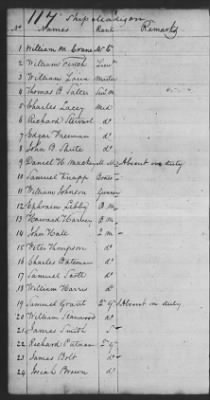 117 Ship Madison
No Names Rank Remarks
1 William M. Crane
2 William Finch Lieut
3 William Master
4 Thomas B. Salter
5 Charles Lacey Mid
6 Richard do
7 Edgar Freeman do
8 John B. Shute do
9 Daniel H. Absent on duty
10 Samuel Knapp Boats
11 William Johnson Gunner
12 Ephraim Libby
13 Howard Harvey
14 John Hall
15 Peter Thompson do
16 Charles Bateman do
17 Samuel Scott do
18 William Harris do
19 Samuel Grant Absent on duty
20 William do
21 James Smith
22 Richard Putnam
23 James Bolt do
24 Josiah Brown do